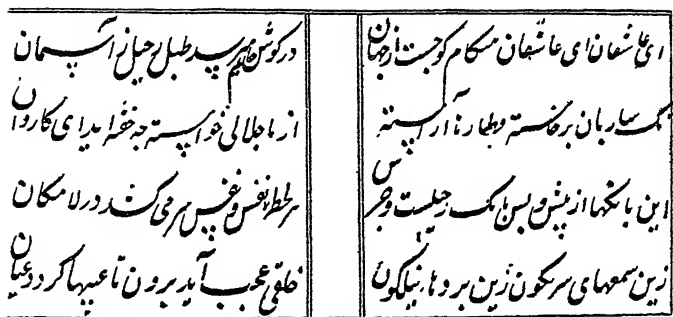 ای عاشقان ای عاشقان هنگام کوچست از جهان
در گوش جانم میرسد طبل رحیل از آسمان
نک ساربان برخاسته و قطارها آراسته
از ما حلالی خواسته چه خفته اید ای کاروان
این بانگها از پیش و پس بانگ رحیلست و جرس
هر لحظه نفس و نفس سر می کشد در لامکان
زین شمعهای سرنگون زین پردهای نیلگون
خلقی عجب آید برون تا غیبها گردد عیان